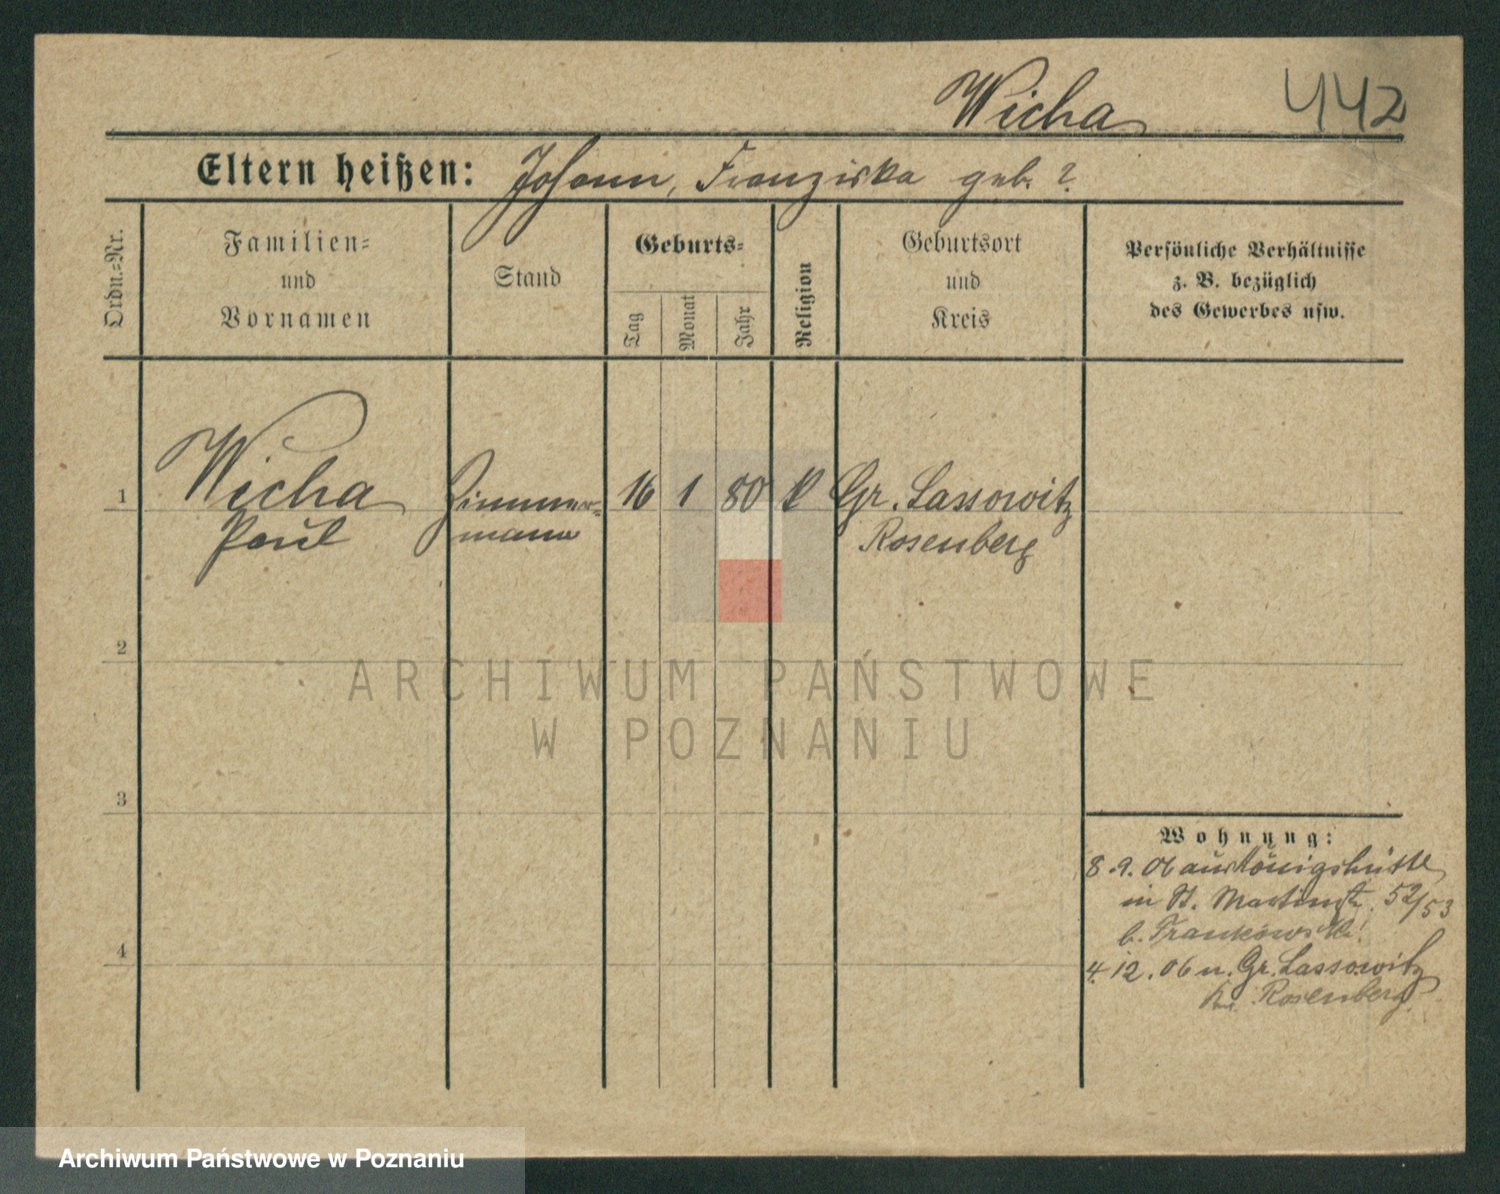 Wicha 442
Eltern heißen: Johann, Franziska geb. ?
Ordn.=Nr.
Familien=
und
Vornamen
Stand
Geburts=
Tag
Monat
Jahr
Religion
Geburtsort
und
Kreis
Persönliche Verhältnisse
z. B. bezüglich
des Gewerbes usw.
1 Wicha Zimmer= 16 1 80 k Gr. Lassowitz
Paul mann Rosenberg
2
ARCHIWUM PAŃSTWOWE
W POZNANIU
3
Wohnung:
8.9.06 aus Königshütte
in St. Martinstr. 52/53
b. Frankowski
4
4.12.06 n. Gr. Lassowitz
Rosenberg
Archiwum Państwowe w Poznaniu